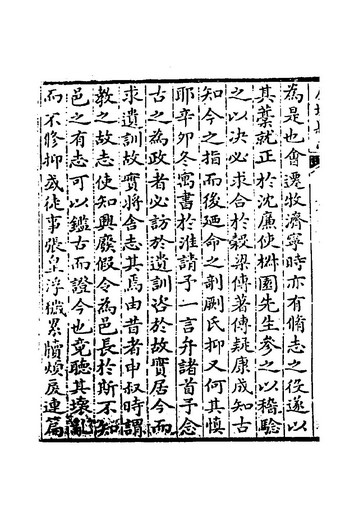 為是也會遷牧濟寧時亦有脩志之役遂以
其藁就正於沈廉使椒園先生參之以稽驗
之以決必求合於穀梁傳著傳疑康成知古
知今之指而後廼命之剞劂氏抑又何其慎
耶辛卯冬寓書於淮請予一言弁諸首予念
古之為政者必訪於遺訓咨於故實居今而
求遺訓故實將舍志其焉由昔者申叔時謂
教之故志使知興廢假令為邑長於斯不知
邑之有志可以鑑古而證今也竟聽其壞亂
而不修抑或徒事張皇浮穢累牘煩辰連篇